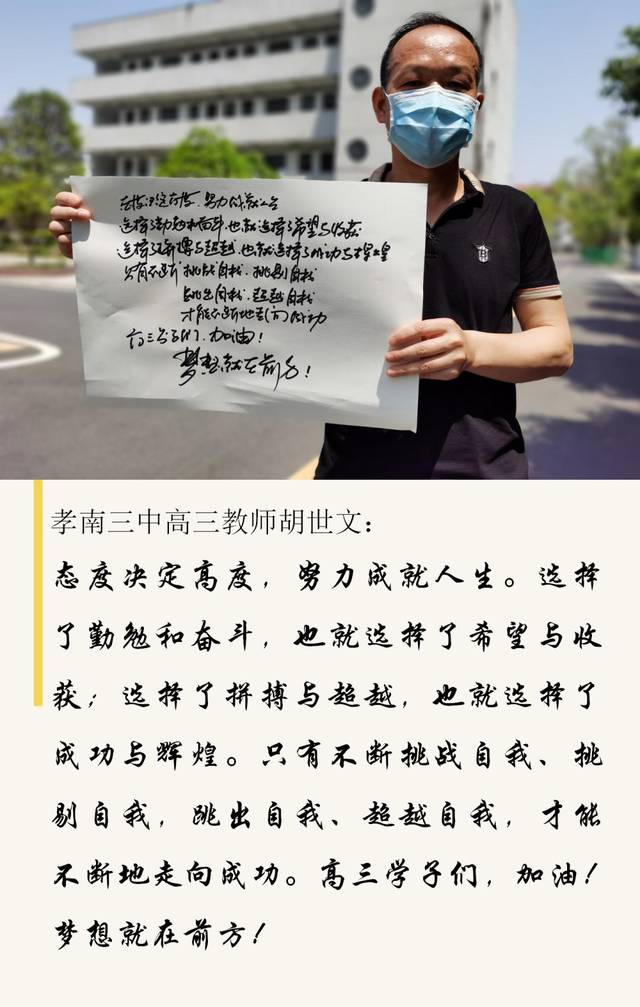 态度决定高度，努力成就人生
选择了勤勉和奋斗，也就选择了希望与收获
选择了拼搏与超越，也就选择了成功与辉煌
只有不断挑战自我、挑剔自我
跳出自我、超越自我
才能不断地走向成功
高三学子们，加油！
梦想就在前方！
孝南三中高三教师胡世文：
态度决定高度，努力成就人生。选择
了勤勉和奋斗，也就选择了希望与收
获；选择了拼搏与超越，也就选择了
成功与辉煌。只有不断挑战自我、挑
剔自我，跳出自我、超越自我，才能
不断地走向成功。高三学子们，加油！
梦想就在前方！